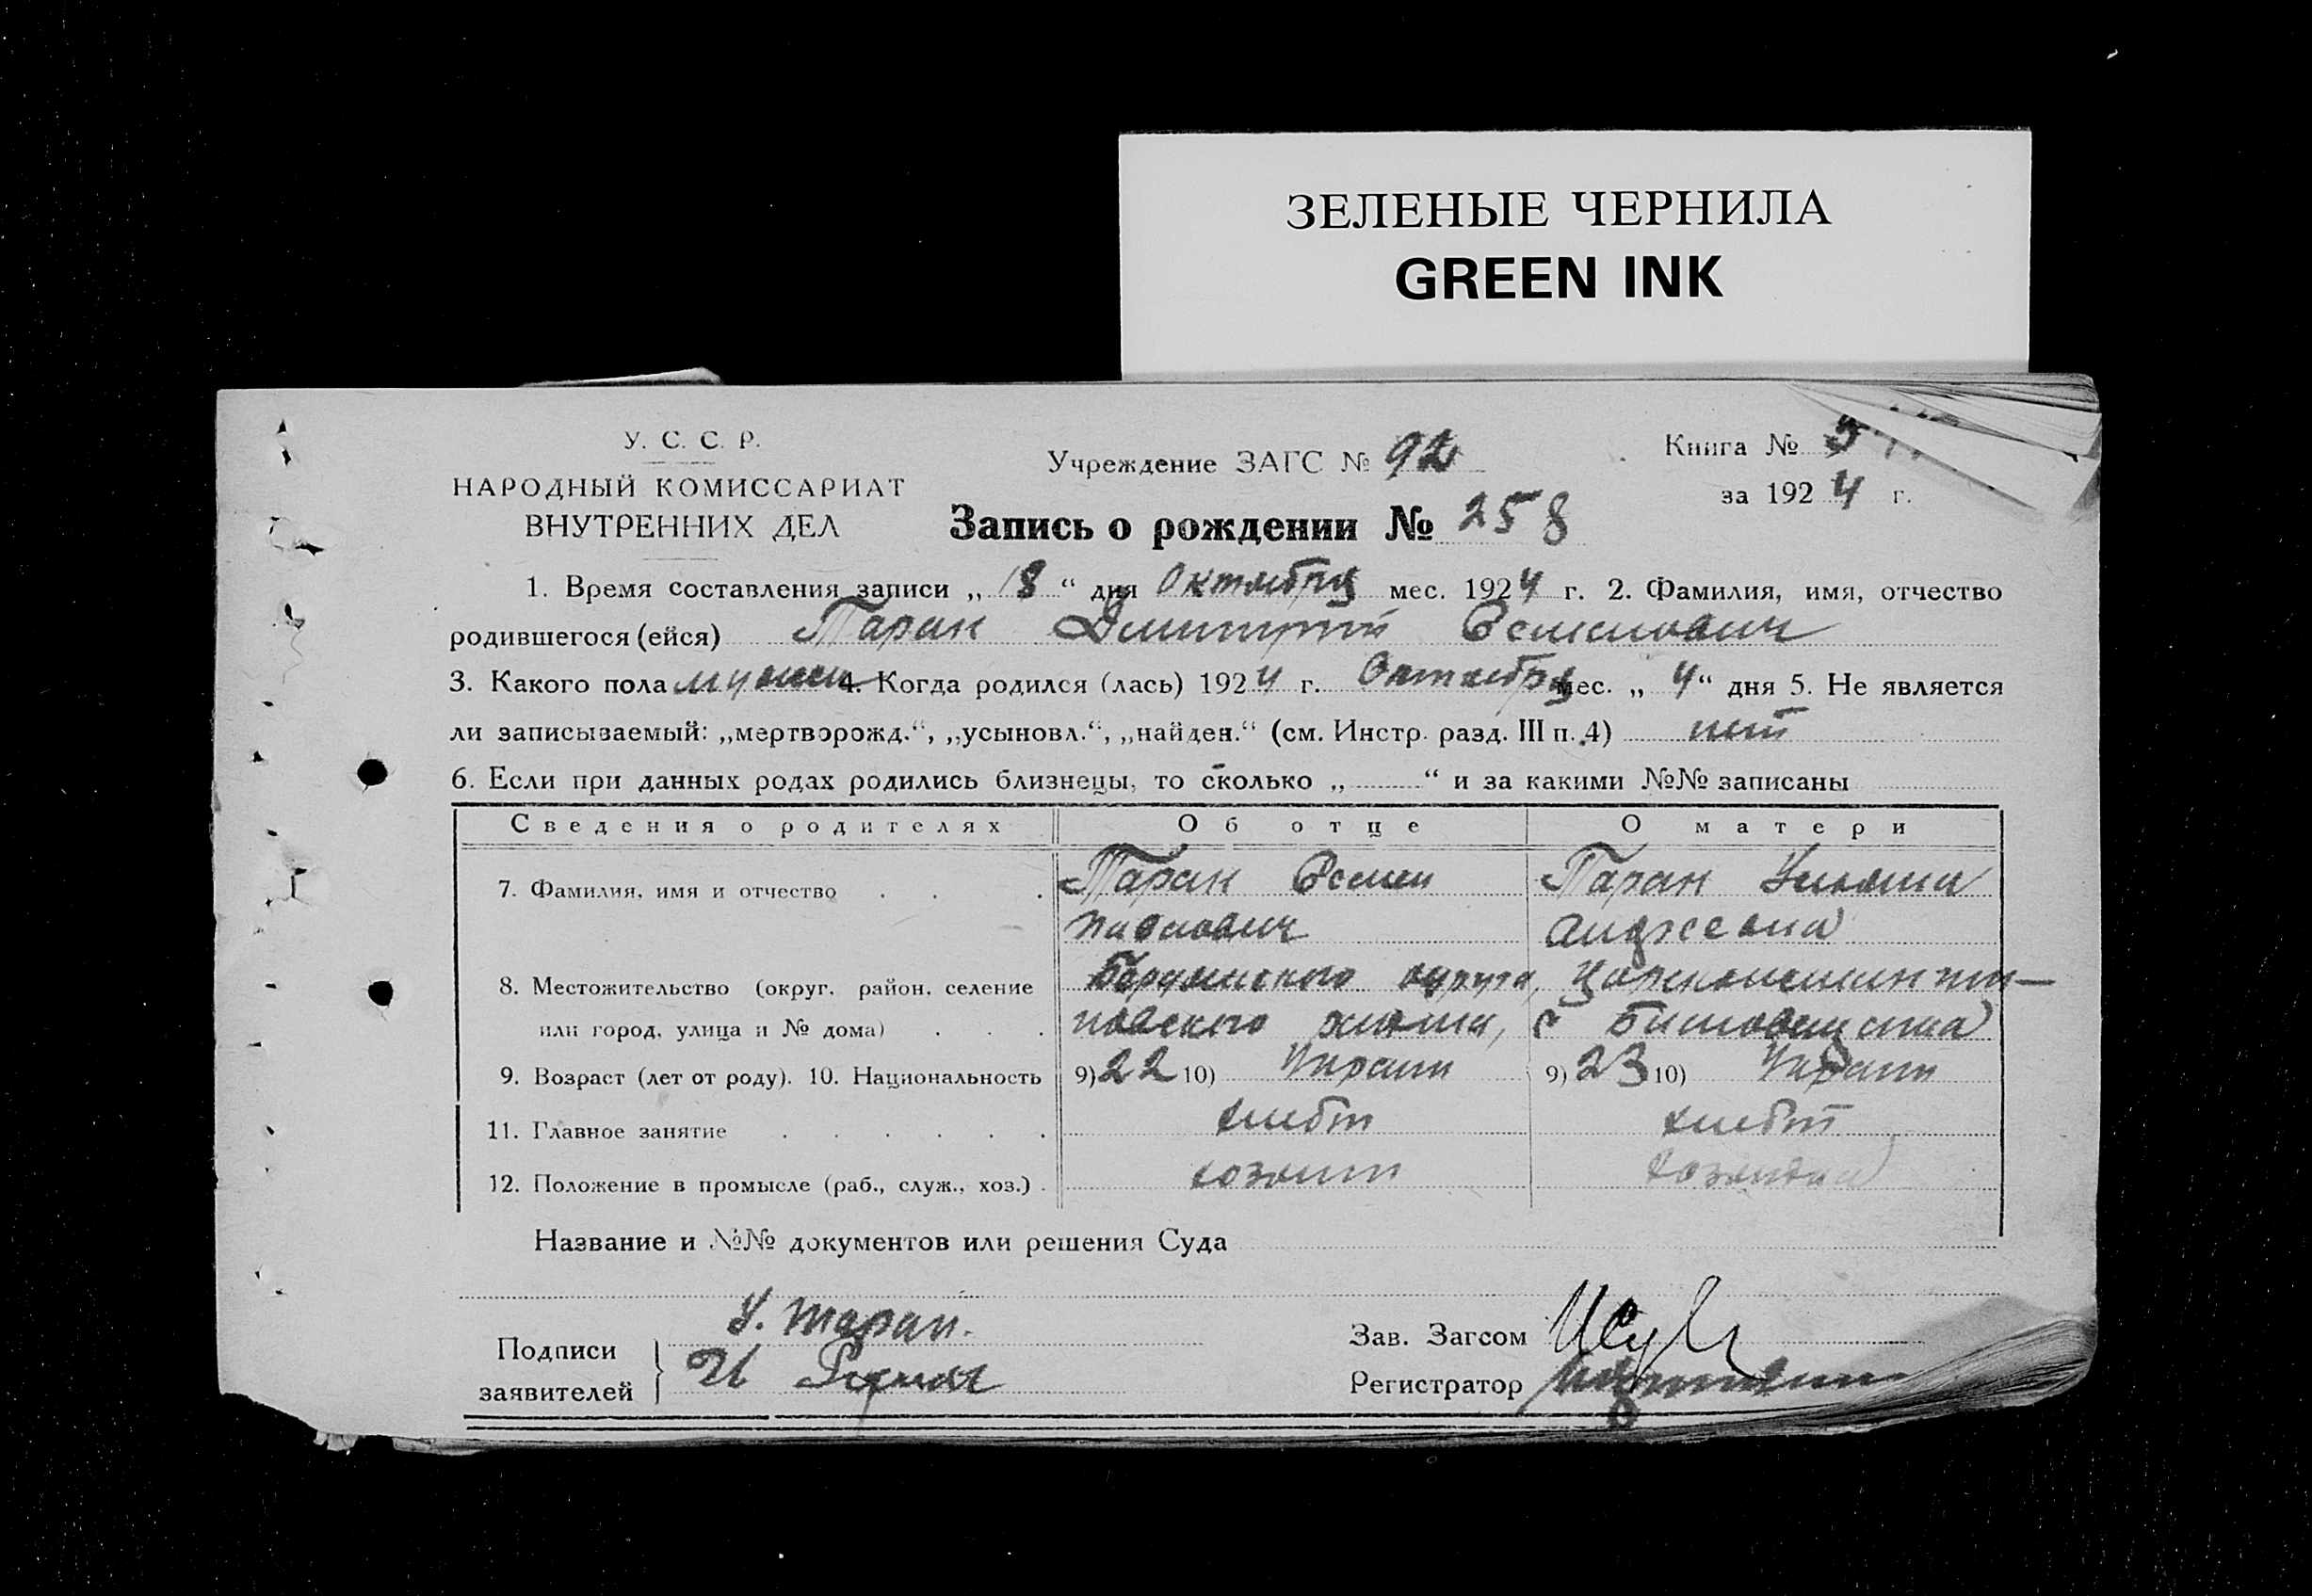 ЗЕЛЕНЫЕ ЧЕРНИЛА
GREEN INK
У. С. С. Р.
НАРОДНЫЙ КОМИССАРИАТ
ВНУТРЕННИХ ДЕЛ
Учреждение ЗАГС № 92
Книга №
за 1924 г.
Запись о рождении № 258
1. Время составления записи „18“ дня Октября мес. 1924 г. 2. Фамилия, имя, отчество
родившегося (ейся) Таран Дмитрий Семенович
3. Какого пола мужск 4. Когда родился (лась) 1924 г. Октября мес. „4“ дня 5. Не является
ли записываемый: „мертворожд.“, „усыновл.“, „найден.“ (см. Инстр. разд. III п. 4) нет
6. Если при данных родах родились близнецы, то сколько „ “ и за какими №№ записаны
Сведения о родителях Об отце О матери
7. Фамилия, имя и отчество Таран Семен Таран Ульяна
Павлович Андреевна
8. Местожительство (округ, район, селение округа, Цареконстанти-
или город, улица и № дома) новского с
9. Возраст (лет от роду). 10. Национальность 9) 22 10) Украин 9) 23 10) Украин
11. Главное занятие хлебт хлебт
12. Положение в промысле (раб., служ., хоз.) хозяин хозяйка
Название и №№ документов или решения Суда
Подписи заявителей У. Таран.
И
Зав. Загсом
Регистратор